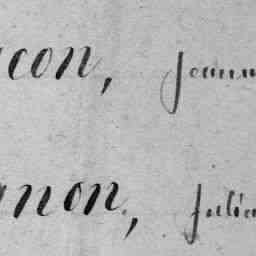 con, jeann
non, julie